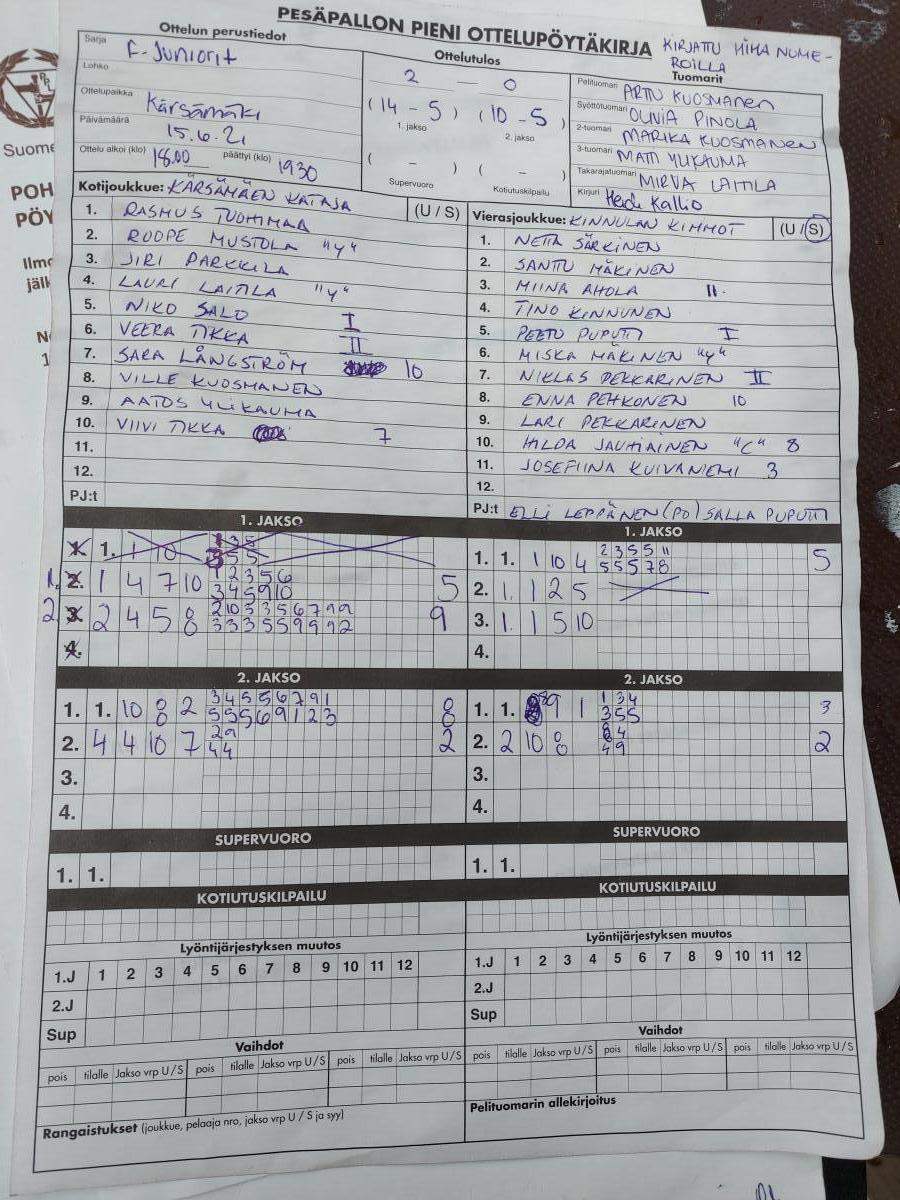 Suome
POH
PÖY
Ilmo
jälk
PESÄPALLON PIENI OTTELUPÖYTÄKIRJA
KIRJATTU HIHA NUME-
ROILLA
Ottelun perustiedot
Sarja F-Juniorit
Lohko
Ottelupaikka Kärsämäki
Päivämäärä 15.6.21
Ottelu alkoi (klo) 18.00 päättyi (klo) 1930
Ottelutulos
2 – 0
(14 – 5) (10 – 5)
1. jakso 2. jakso
( – ) ( – )
Supervuoro Kotiutuskilpailu
Tuomarit
Pelituomari ARTU KUOSMANEN
Syöttötuomari OLIVIA PINOLA
2-tuomari MARIKA KUOSMANEN
3-tuomari MATTI YLIKAUMA
Takarajatuomari MIRVA LAITILA
Kirjuri Heidi Kallio
Kotijoukkue: KÄRSÄMÄEN KATAJA (U / S)
1. RASMUS TUOHIMAA
2. ROOPE MUSTOLA "Y"
3. JIRI PARKKILA
4. LAURI LAITILA "Y"
5. NIKO SALO I
6. VEERA TIKKA II
7. SARA LÅNGSTRÖM 10
8. VILLE KUOSMANEN
9. AATOS YLIKAUMA
10. VIIVI TIKKA 7
11.
12.
PJ:t
Vierasjoukkue: KINNULAN KIMMOT (U / S)
1. NETTA SÄRKINEN
2. SANTU MÄKINEN
3. MIINA AHOLA II.
4. TINO KINNUNEN
5. PEETU PUPUTTI I
6. MISKA MÄKINEN "Y"
7. NIKLAS PEKKARINEN II
8. ENNA PEHKONEN 10
9. LARI PEKKARINEN
10. HILDA JAUHIAINEN "C" 8
11. JOSEFIINA KUIVANIEMI 3
12.
PJ:t ELLI LEPPÄNEN (PO) SALLA PUPUTTI
1. JAKSO
1. 1. 1 10
1. 2. 1 4 7 10 1 2 3 5 6 5
3 4 5 9 10
2. 3. 2 4 5 8 2 10 3 3 5 6 7 9 9 9
3 3 3 5 5 9 9 9 2
4.
1. JAKSO
1. 1. 1 10 4 2 3 5 5 11 5
5 5 5 7 8
2. 1. 1 2 5
3. 1. 1 5 10
4.
2. JAKSO
1. 1. 10 8 2 3 4 5 5 6 7 9 1 8
5 5 5 6 9 1 2 3
2. 4 4 10 7 2 9 2
4 4
3.
4.
2. JAKSO
1. 1. 9 1 1 3 4 3
3 5 5
2. 2 10 8 8 4 2
4 9
3.
4.
SUPERVUORO
1. 1.
SUPERVUORO
1. 1.
KOTIUTUSKILPAILU
KOTIUTUSKILPAILU
Lyöntijärjestyksen muutos
1.J 1 2 3 4 5 6 7 8 9 10 11 12
2.J
Sup
Lyöntijärjestyksen muutos
1.J 1 2 3 4 5 6 7 8 9 10 11 12
2.J
Sup
Vaihdot
pois tilalle Jakso vrp U / S pois tilalle Jakso vrp U / S pois tilalle Jakso vrp U / S
Vaihdot
pois tilalle Jakso vrp U / S pois tilalle Jakso vrp U / S pois tilalle Jakso vrp U / S
Rangaistukset (joukkue, pelaaja nro, jakso vrp U / S ja syy)
Pelituomarin allekirjoitus